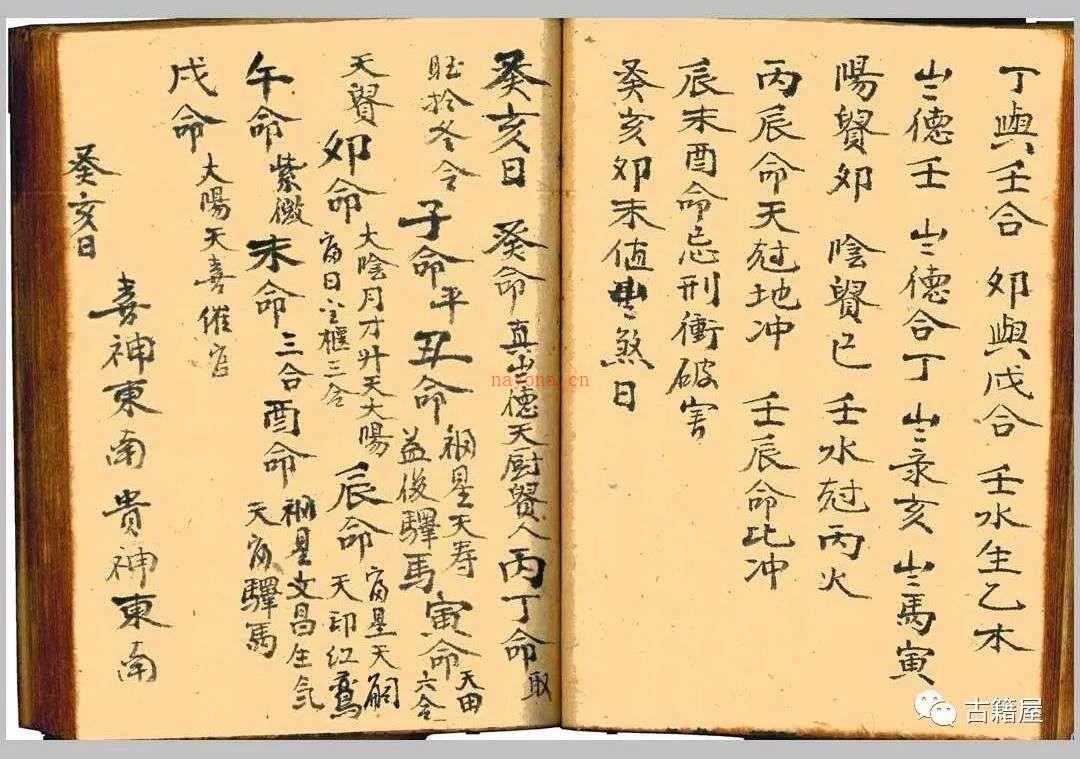 丁與壬合 卯與戌合 壬水生乙木
亗德壬 亗德合丁 亗彔亥 亗馬寅
陽貴卯 陰貴巳 壬水尅丙火
丙辰命天尅地冲 壬辰命比冲
辰未酉命忌刑衝破害
癸亥卯未值亗煞日
癸亥日 癸命 真亗德天厨貴人 丙丁命 取
於冬令 子命 平 丑命 福星天寿 益後驛馬 寅命 天田 六合
天貴 卯命 大陰月才升天大陽 富日 三合 辰命 富星天嗣 天印紅鸞
午命 紫微 未命 三合 酉命 福星文昌生氣 天富驛馬
戌命 大陽天喜催官
癸亥日
喜神東南 貴神東南
nayona.cn
古籍屋